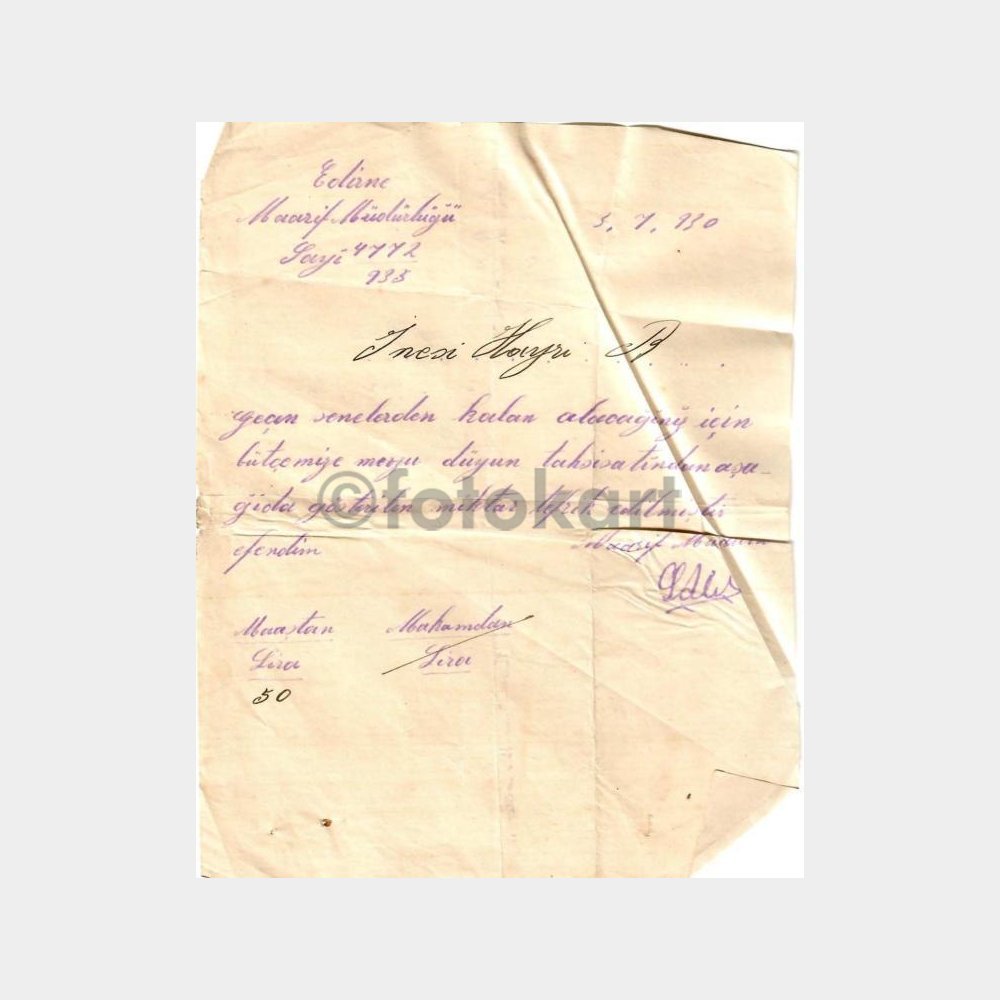 Edirne
Maarif Müdürlüğü
5. 7. 930
Sayi 4772
935
İnesi Hayri B.
geçen senelerden kalan alacağiniz için
bütçemize mevzu düyun tahsisatindan aşa-
ğida gösterilen miktar tefrik edilmiştir
©fotokart
efendim
Maarif Müdürü
Maaştan Makamdan
Lira Lira
50